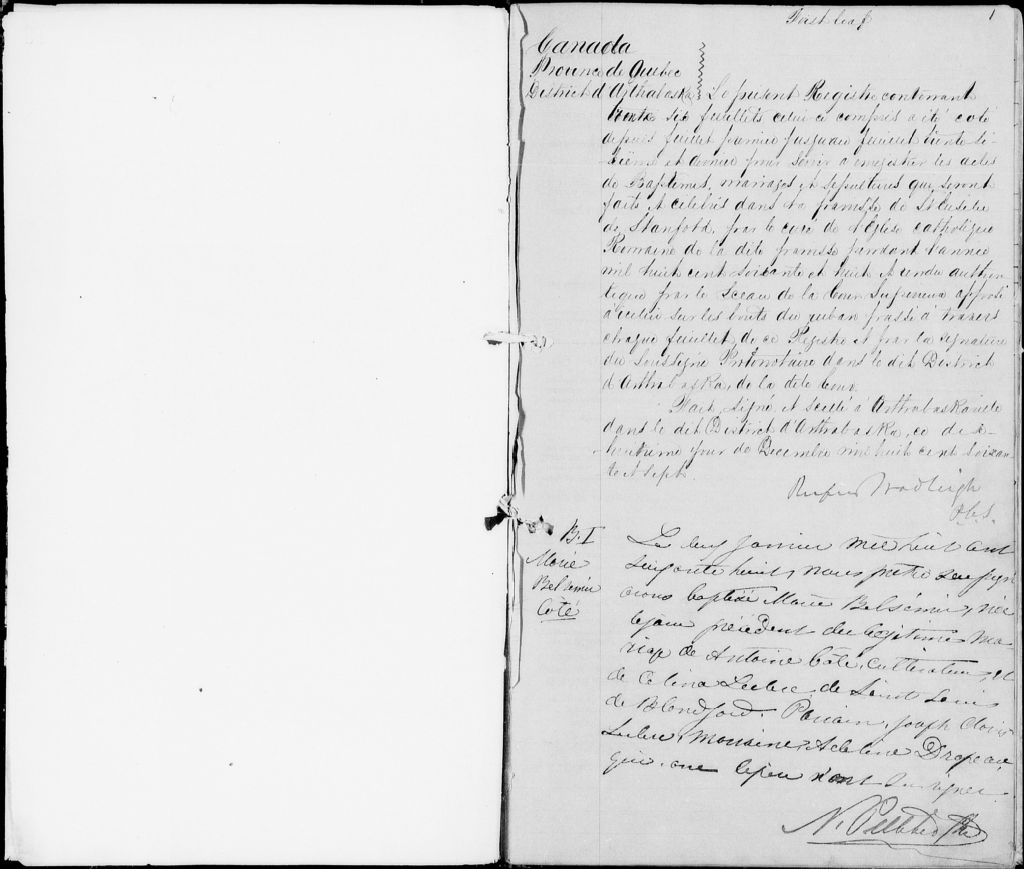 First leaf 1
Canada
Province de Quebec
District d'Arthabaska Le présent Registre contenant
trente six feuillets celui ci compris a été coté
depuis feuillet premier jusquau feuillet trente si-
xième et dernier pour servir à enregistrer les actes
de Baptêmes, mariages et sépultures qui seront
faits et célébrés dans la paroisse de St Eusèbe
de Stanfold, par le curé de l'Eglise catholique
Romaine de la dite paroisse pendant l'année
mil huit cent soixante et huit et rendu authen-
tique par le Sceau de la Cour Supérieure apposé
sur les bouts du ruban passé à travers
chaque feuillet de ce Registre et par la signature
du Soussigné Protonotaire dans le dit District
d'Arthabaska, de la dite Cour.
Fait, signé et scellé à Arthabaskaville
dans le dit District d'Arthabaska, ce dix-
huitieme jour de Decembre mil huit cent soixan-
te et sept.
Rufus Wadleigh
P.C.S.
B.1
Marie
Belsémir
Côté
Le deux janvier mil huit cent
soixante huit, nous prêtre soussigné
avons baptisé Marie Belsémir, née
le jour précédent du légitime ma-
riage de Antoine Côté, Cultivateur, et
de Célina Leclerc de Saint Louis
de Blandford. Parrain, Joseph Clovis
Leclerc, Marraine, Adeline Drapeau
qui, que le père n'ont su signer.
N. Pelletier Ptre